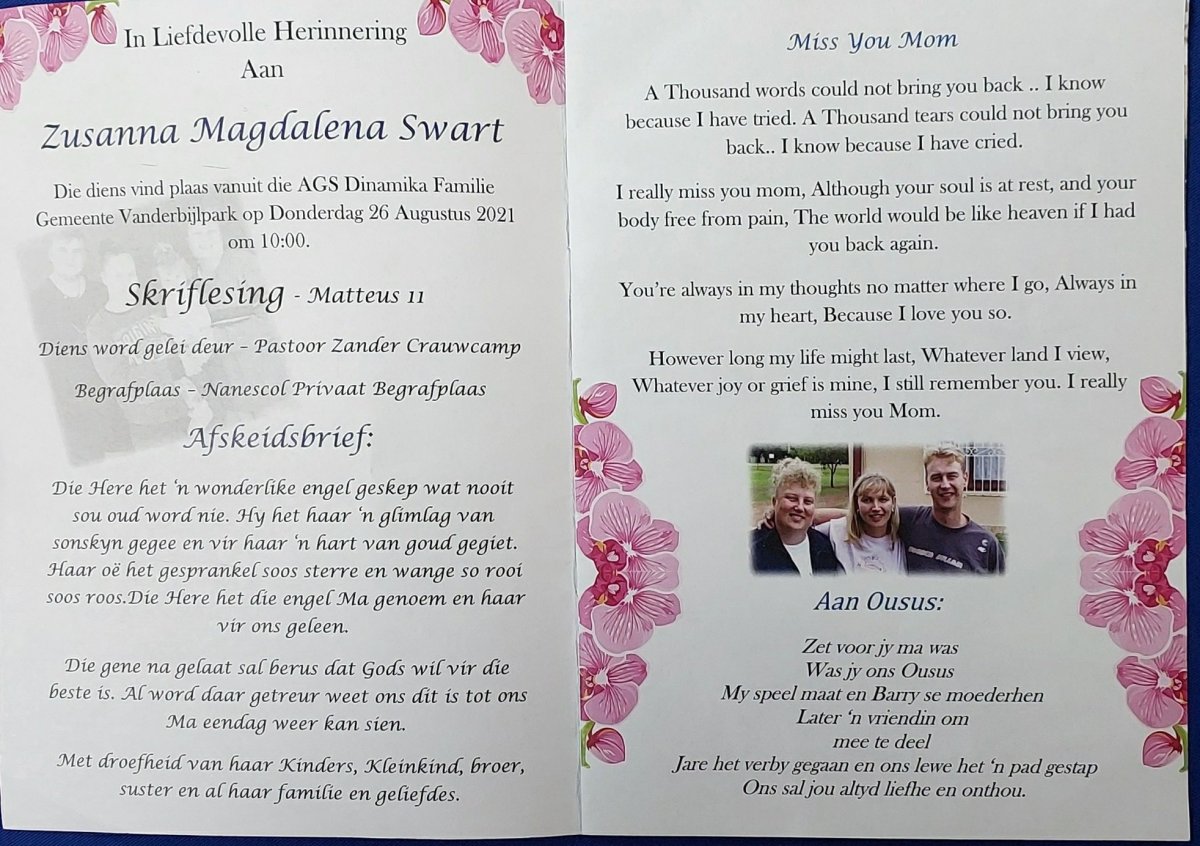 In Liefdevolle Herinnering
Aan
Zusanna Magdalena Swart
Die diens vind plaas vanuit die AGS Dinamika Familie
Gemeente Vanderbijlpark op Donderdag 26 Augustus 2021
om 10:00.
Skriflesing - Matteus 11
Diens word gelei deur – Pastoor Zander Crauwcamp
Begrafplaas – Nanescol Privaat Begrafplaas
Afskeidsbrief:
Die Here het ‘n wonderlike engel geskep wat nooit
sou oud word nie. Hy het haar ‘n glimlag van
sonskyn gegee en vir haar ‘n hart van goud gegiet.
Haar oë het gesprankel soos sterre en wange so rooi
soos roos.Die Here het die engel Ma genoem en haar
vir ons geleen.
Die gene na gelaat sal berus dat Gods wil vir die
beste is. Al word daar getreur weet ons dit is tot ons
Ma eendag weer kan sien.
Met droefheid van haar Kinders, Kleinkind, broer,
suster en al haar familie en geliefdes.
Miss You Mom
A Thousand words could not bring you back .. I know
because I have tried. A Thousand tears could not bring you
back.. I know because I have cried.
I really miss you mom, Although your soul is at rest, and your
body free from pain, The world would be like heaven if I had
you back again.
You’re always in my thoughts no matter where I go, Always in
my heart, Because I love you so.
However long my life might last, Whatever land I view,
Whatever joy or grief is mine, I still remember you. I really
miss you Mom.
Aan Ousus:
Zet voor jy ma was
Was jy ons Ousus
My speel maat en Barry se moederhen
Later ‘n vriendin om
mee te deel
Jare het verby gegaan en ons lewe het ‘n pad gestap
Ons sal jou altyd liefhe en onthou.